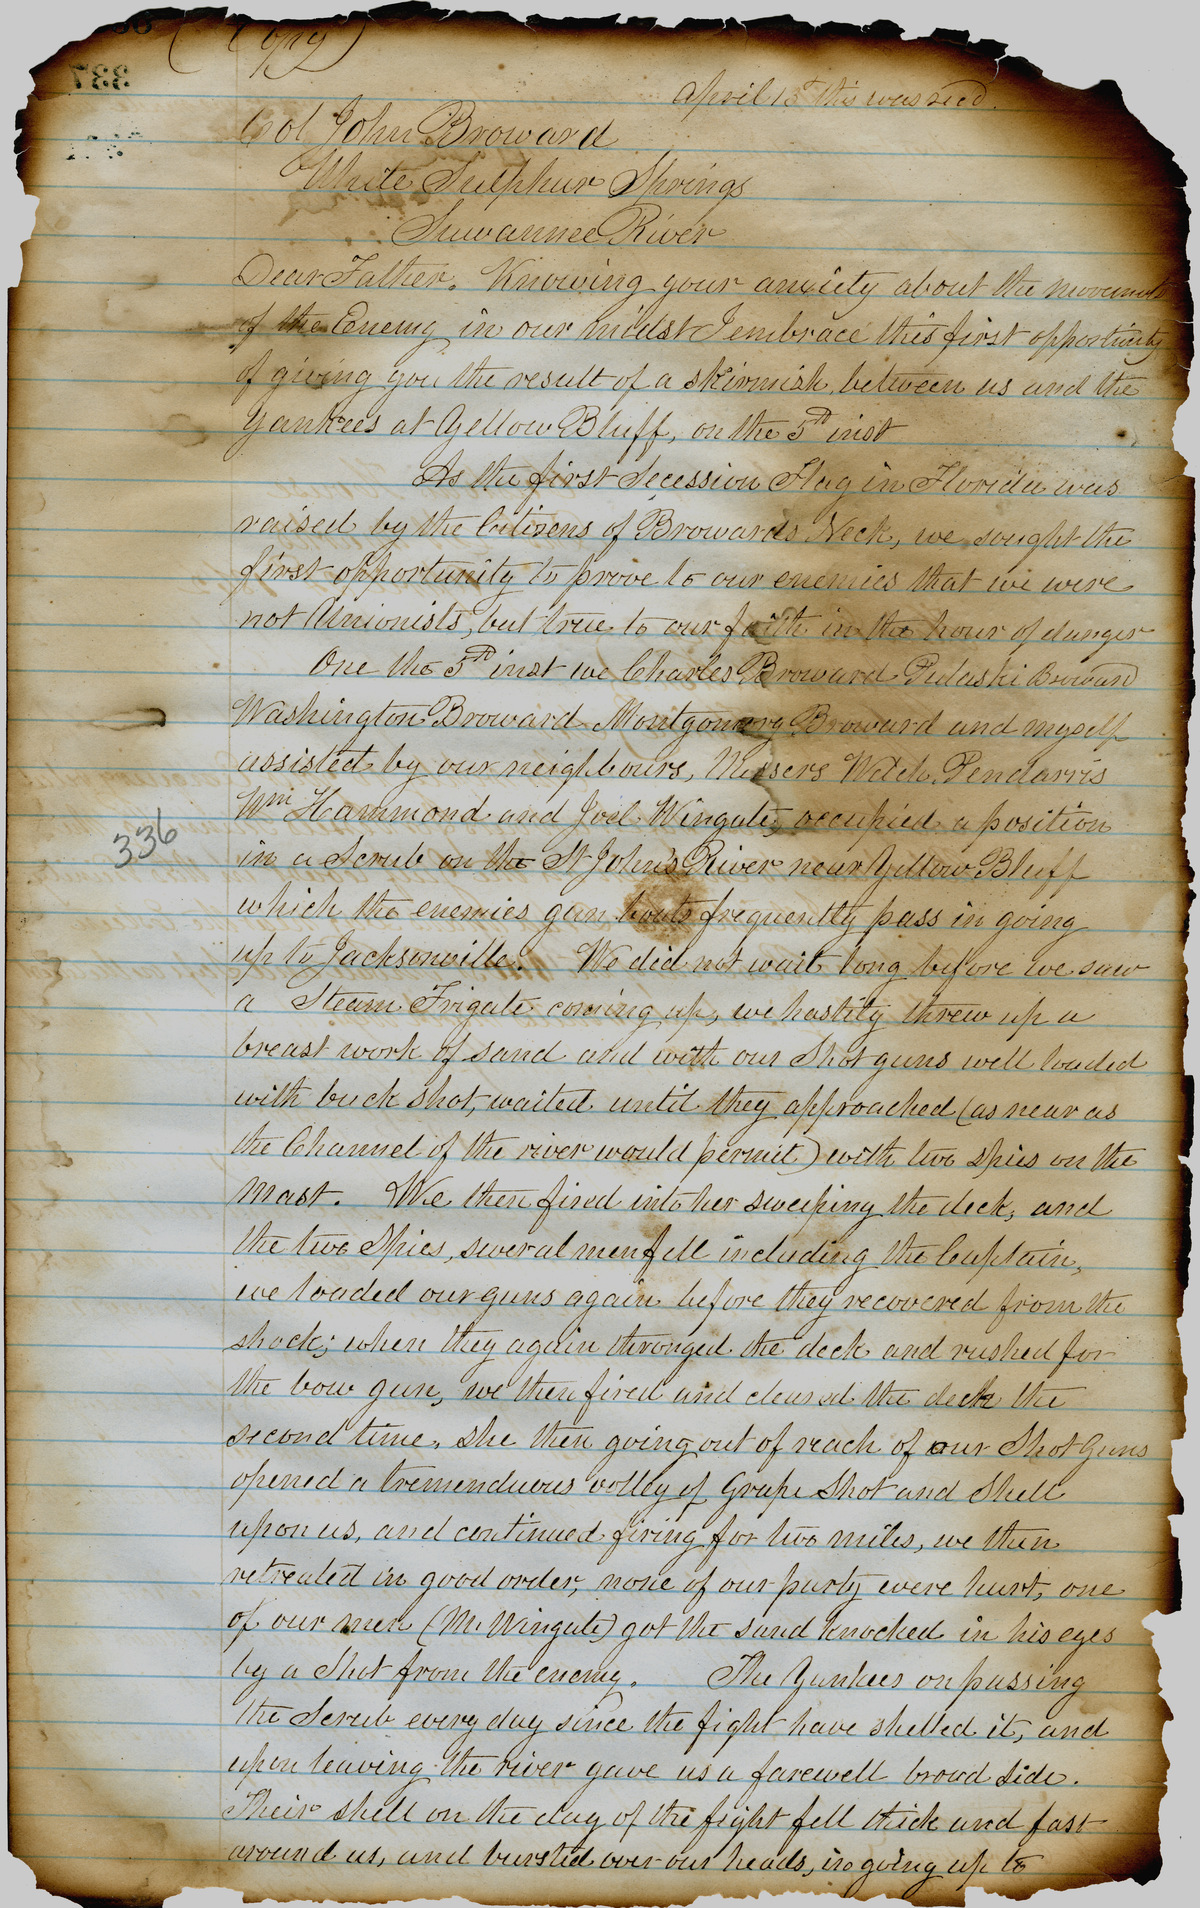 (Copy)
337
April 15th this was recd.
Col John Broward
White Sulphur Springs
Suwannee River
Dear Father. Knowing your anxiety about the movements
of the Enemy in our midst I embrace this first opportunity
of giving you the result of a skirmish, between us and the
Yankees at Yellow Bluff, on the 5th inst
As the first Secession Flag in Florida was
raised by the Citizens of Browards Neck, we sought the
first opportunity to prove to our enemies that we were
not Unionists, but true to our faith in the hour of danger
One the 5th inst we Charles Broward Pulaski Broward
Washington Broward Montgomery Broward and myself
assisted by our neighbours, Messers Welch, Pendarris
Wm Hammond and Joel Wingate, occupied a position
336
in a Scrub on the St John's River near Yellow Bluff
which the enemies gun boats frequently pass in going
up to Jacksonville. We did not wait long before we saw
a Steam Frigate coming up, we hastily threw up a
breast work of sand and with our Shot guns well loaded
with buck shot, waited until they approached (as near as
the Channel of the river would permit) with two spies on the
Mast. We then fired into her sweeping the deck, and
the two Spies, several men fell including the Captain,
we loaded our guns again before they recovered from the
shock; when they again thronged the deck and rushed for
the bow gun, we then fired and cleared the deck the
second time. She then going out of reach of our Shot Guns
opened a tremenduous volley of Grape Shot and Shell
upon us, and continued firing for two miles, we then
retreated in good order, none of our party were hurt, one
of our men (Mr Wingate) got the sand knocked in his eyes
by a Shot from the enemy. The Yankees on passing
the Scrub every day since the fight have shelled it, and
upon leaving the river gave us a farewell broad side.
Their shell on the day of the fight fell thick and fast
around us, and bursted over our heads, in going up to